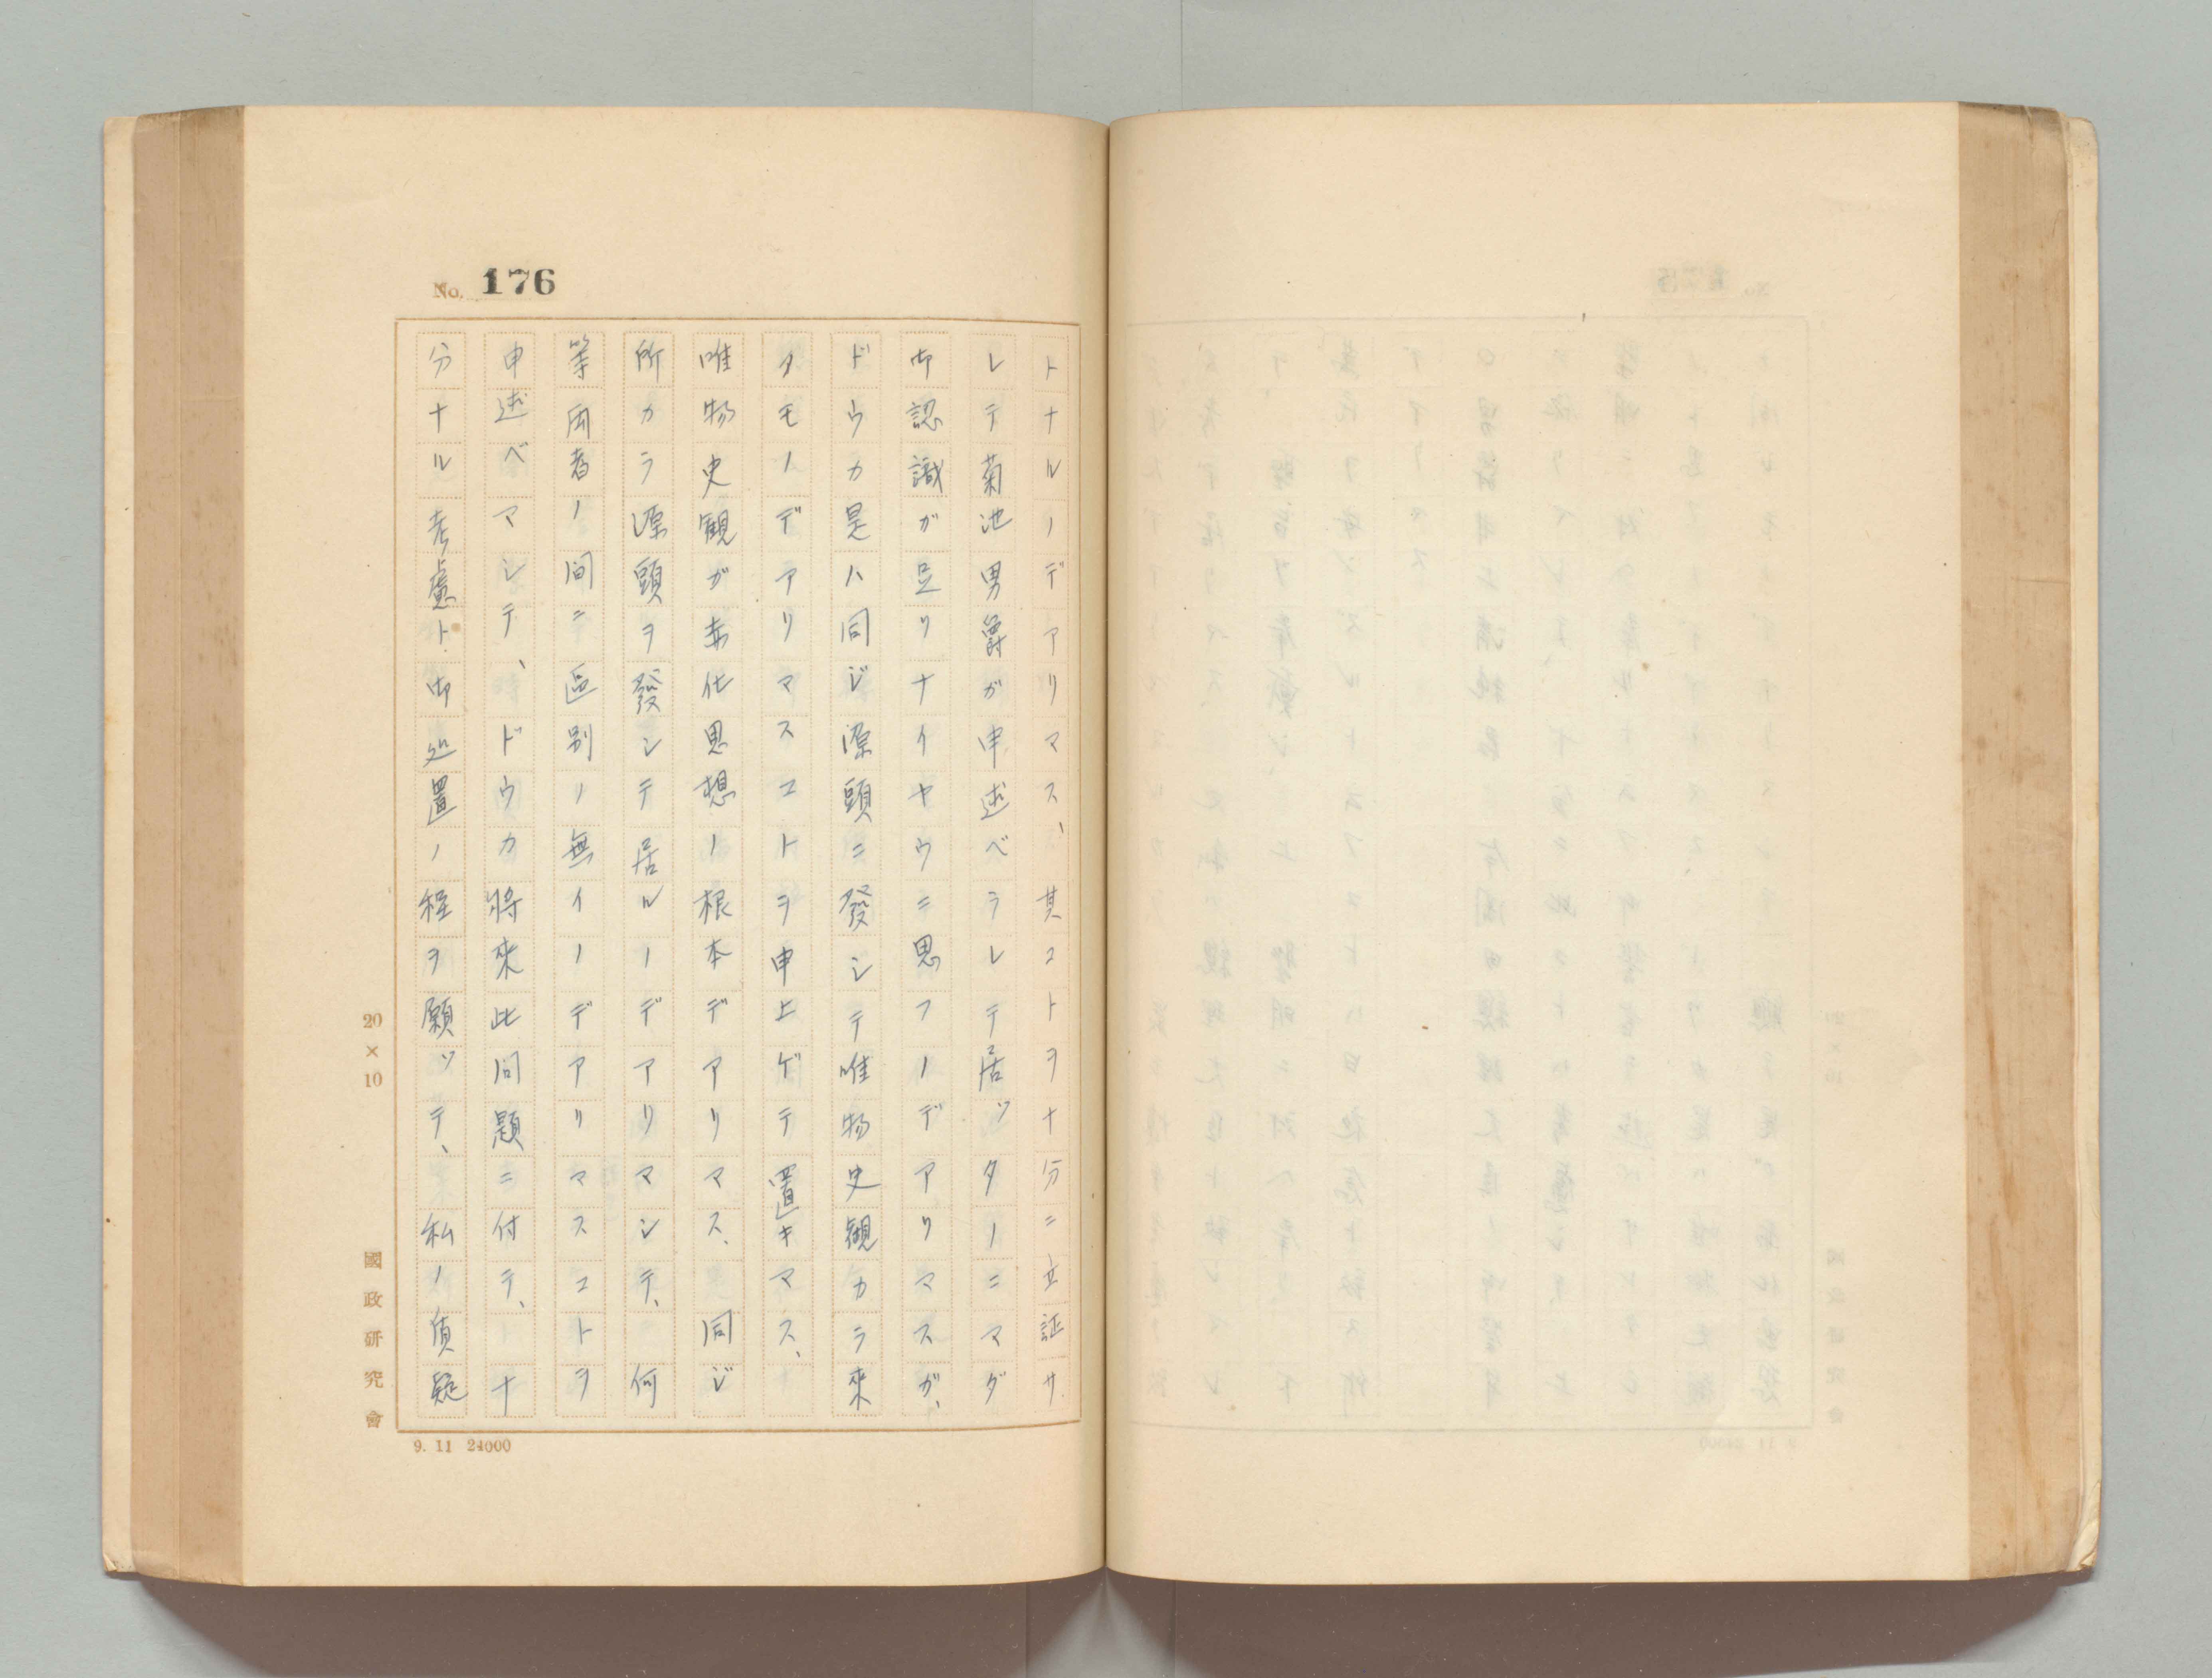 No. 176
トナルノデアリマス、其コトヲ十分ニ立証サ
レテ菊池男爵ガ申述ベラレテ居ッタノニマダ
御認識ガ足リナイヤウニ思フノデアリマスガ、
ドウカ是ハ同ジ源頭ニ發シテ唯物史観カラ來
タモノデアリマスコトヲ申上ゲテ置キマス、
唯物史観ガ赤化思想ノ根本デアリマス、同ジ
所カラ源頭ヲ發シテ居ルノデアリマシテ、何
等両者ノ間ニ區別ノ無イノデアリマスコトヲ
申述ベマシテ、ドウカ將來此問題ニ付テ、十
分ナル考慮ト御処置ノ程ヲ願ッテ、私ノ質疑
20×10
國政研究會
9. 11 24000